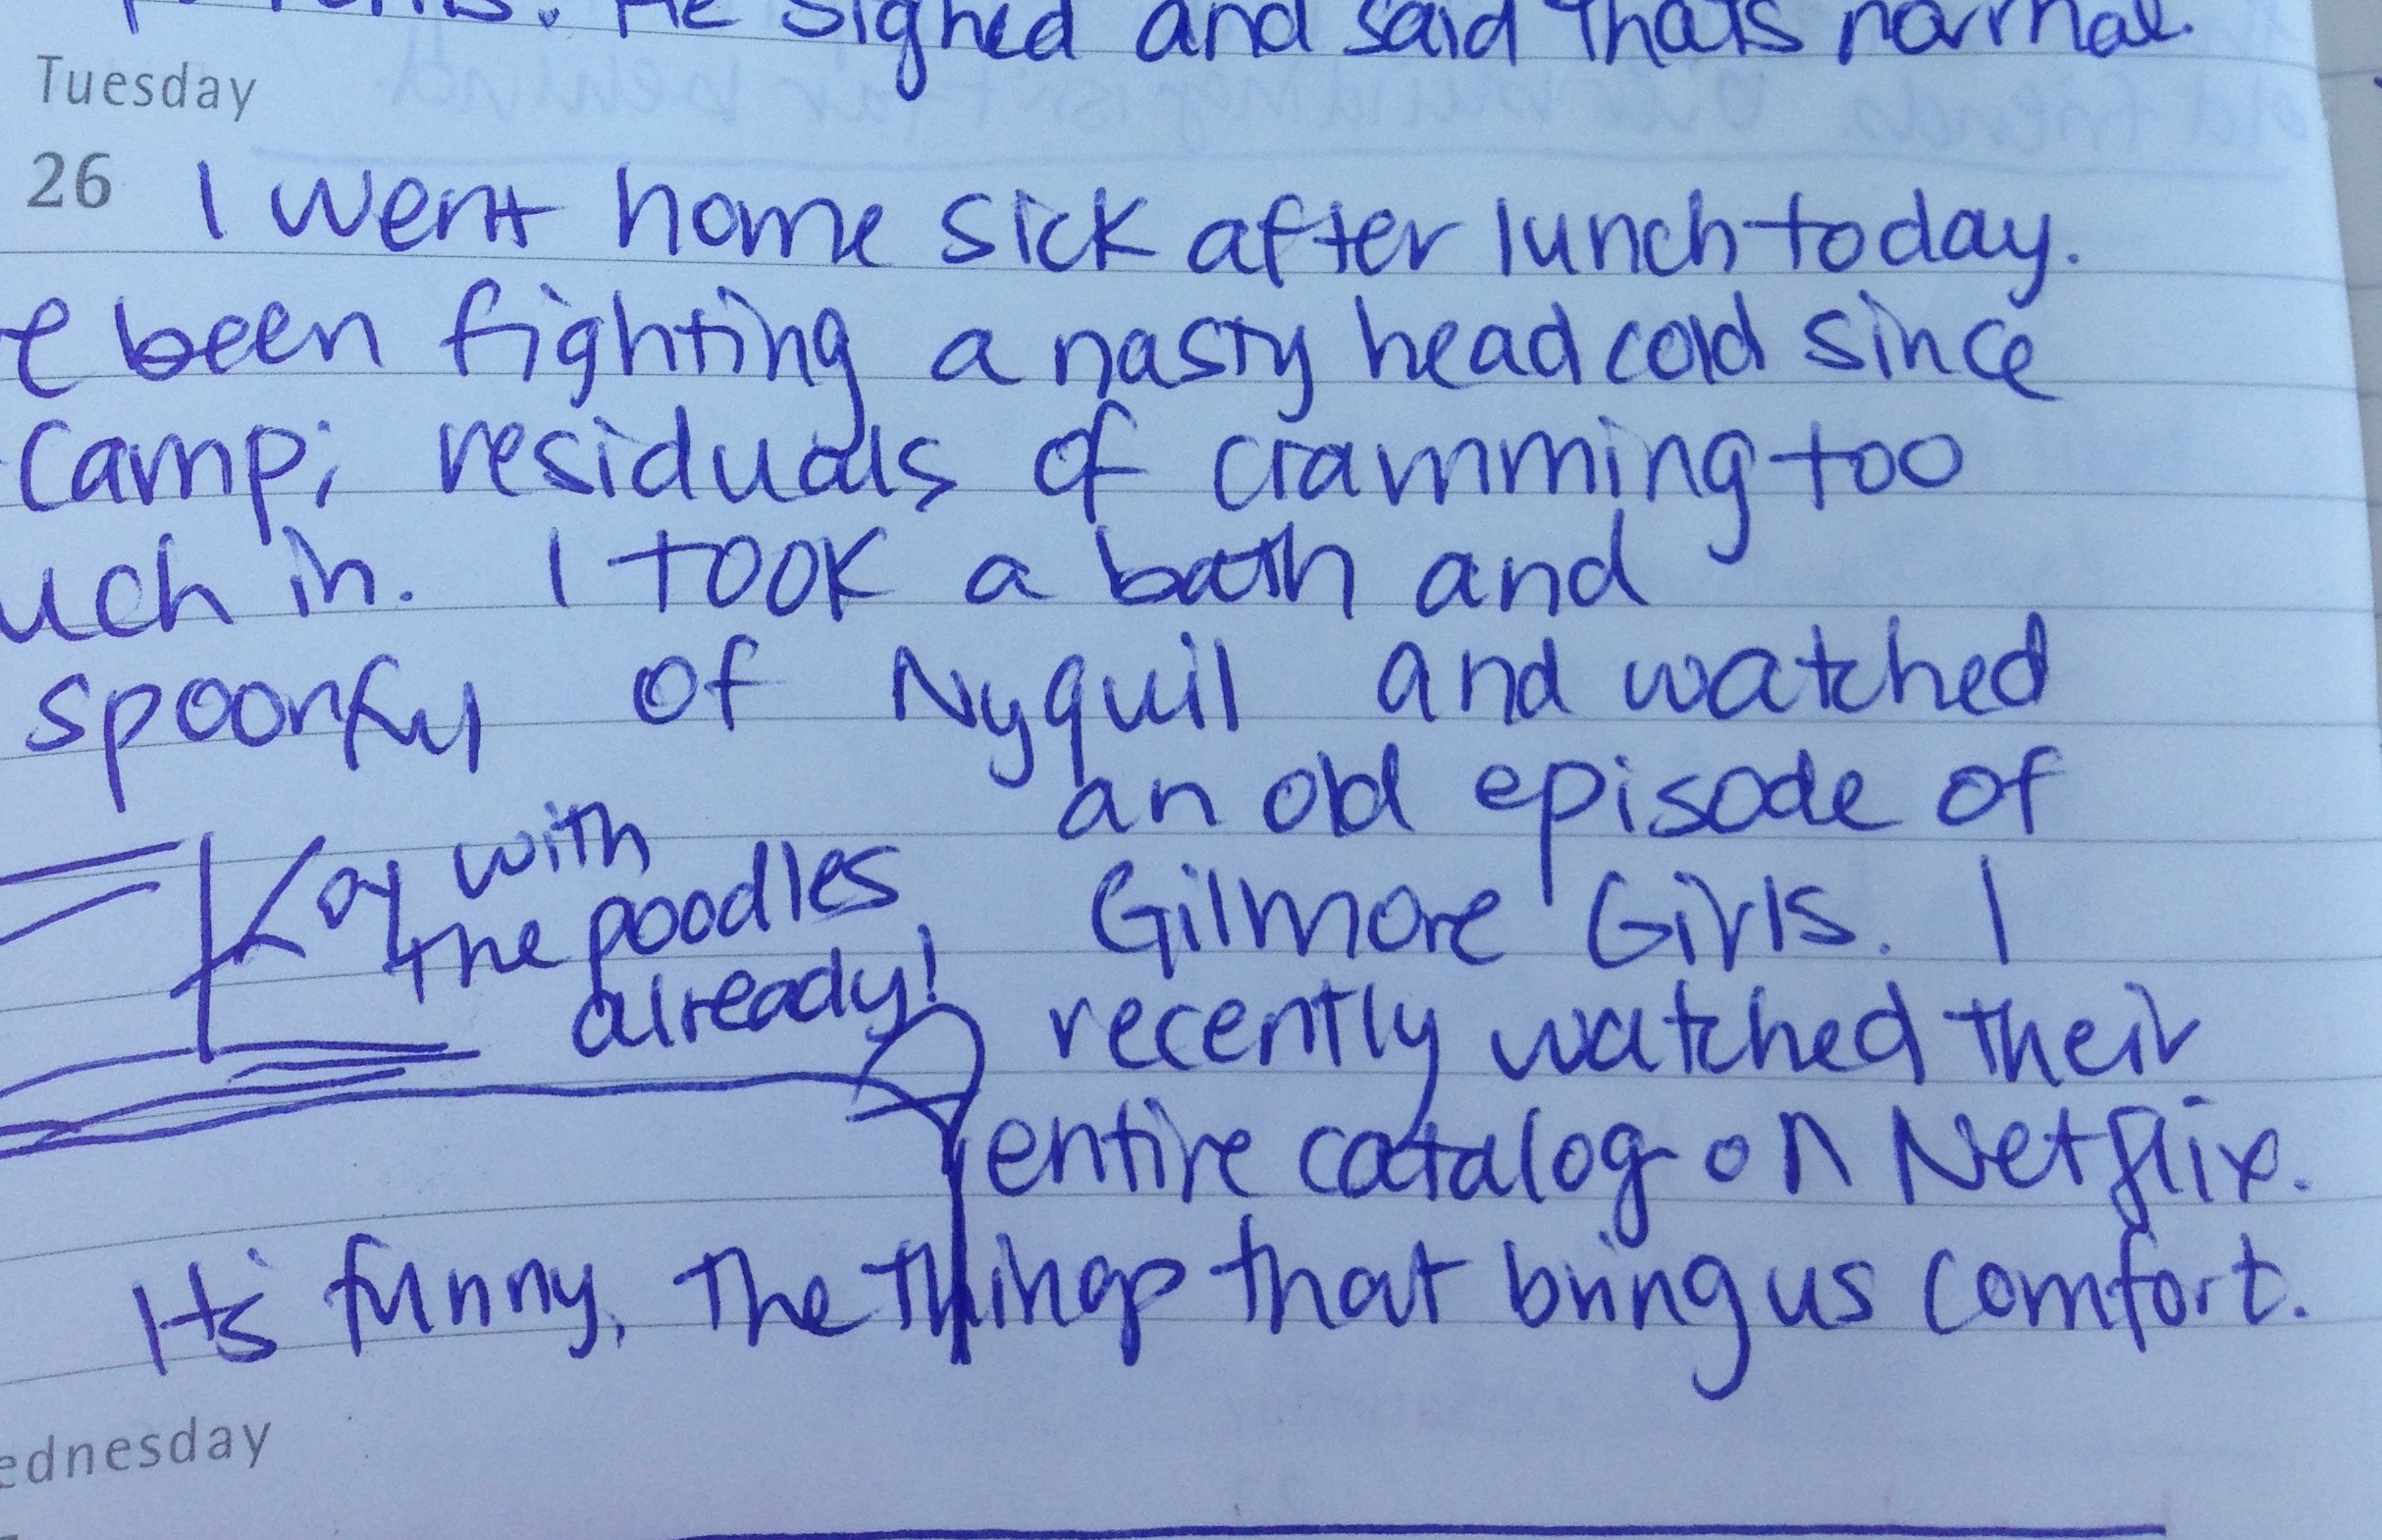 He sighed and said thats normal.
Tuesday
26 I went home sick after lunch today.
e been fighting a nasty head cold since
camp; residuals of cramming too
uch in. I took a bath and
spoonful of Nyquil and watched
an old episode of
Gilmore Girls. I
recently watched their
entire catalog on Netflix.
oy with
the poodles
already!
It's funny, the things that bring us comfort.
ednesday